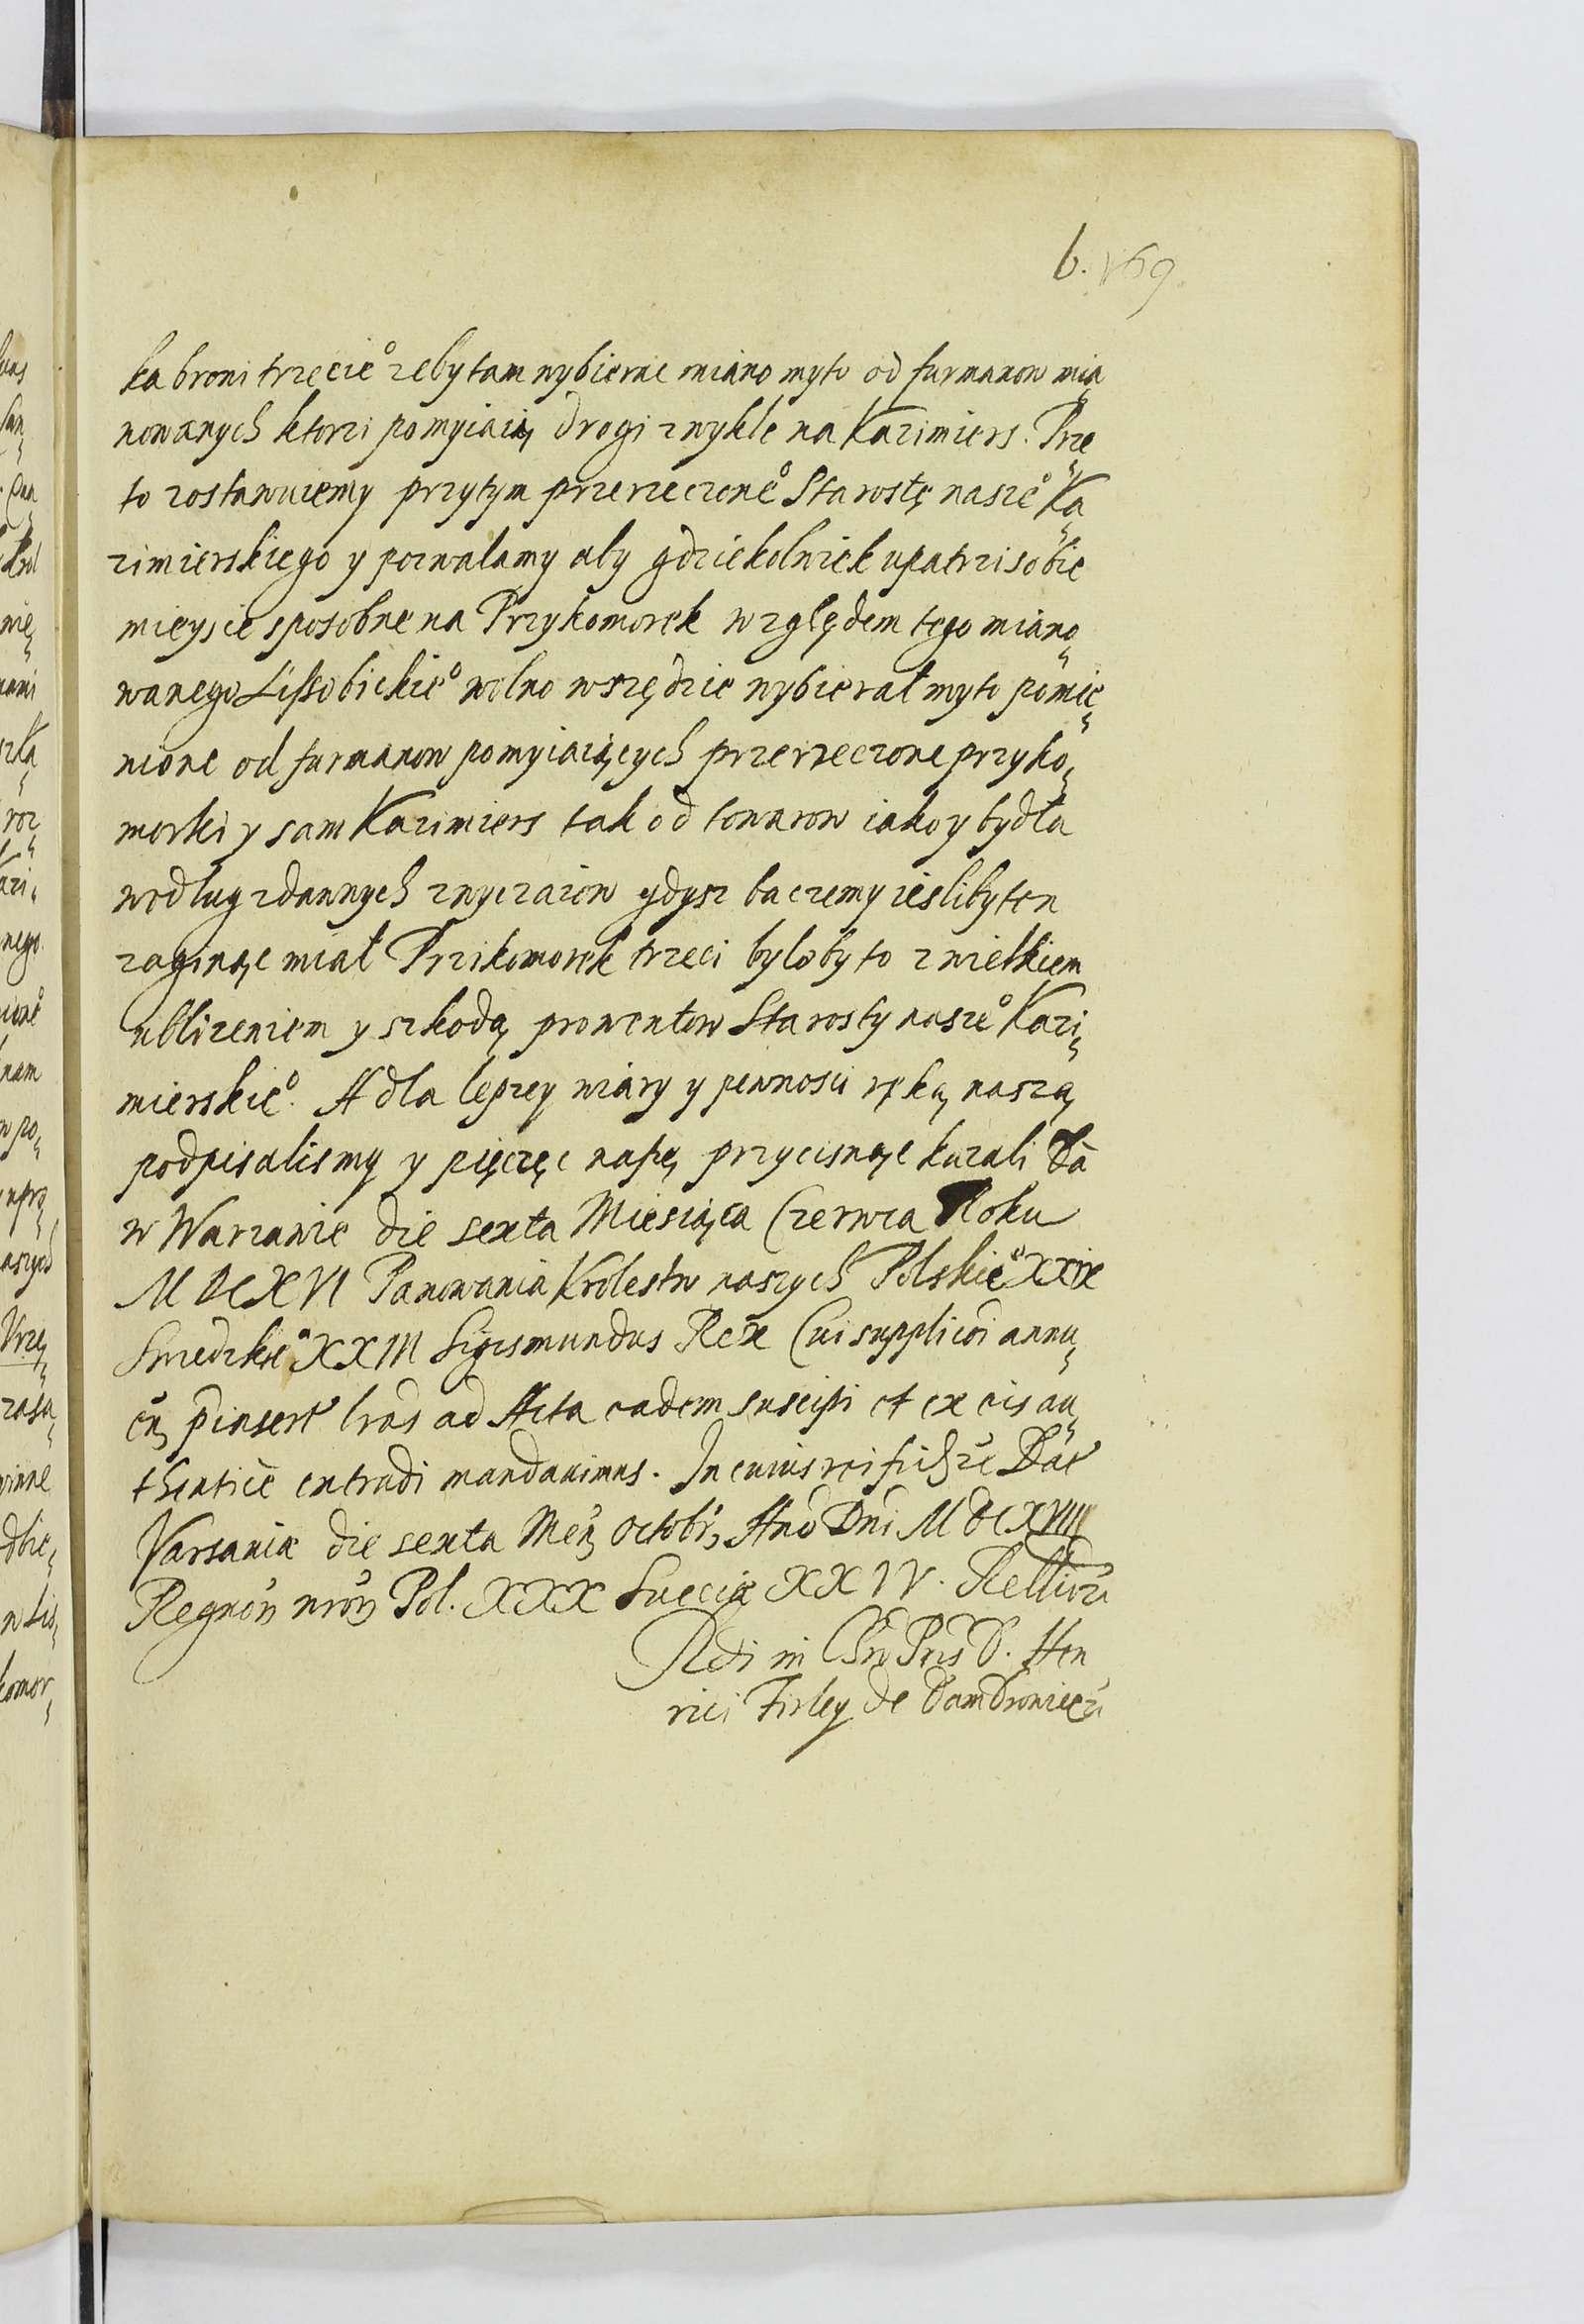 6. 169.
ka broni trzecie° zeby tam wybierac miano myto od furmanow mia„
nowanych ktorzi pomyiaią drogi zwykłe na Kazimiers. Prze„
to zostawuiemy przytym przerzeczone° Starostę nasze° Ka„
zimierskiego y pozwalamy aby gdziekolwiek upatrzi sobie
mieysce sposobne na Przykomorek względem tego miano„
wanego Lissobickie° wolno wszędzie wybierał myto pomie„
nione od furmanow pomyiaiących przerzeczone przyko„
morki y sam Kazimiers tak od towarow iako y bydła
wedlug zdawnych zwyczaiow gdysz baczemy iesliby ten
zaginąc miał Przikomorek trzeci byloby to z wielkiem
ublizeniem y szkodą prowentow Starosty nasze° Kazi„
mierskie°. A dla lepzey wiary y pewnosci ręką naszą
podpisalismy y pięczęc naszę przycisnąc kazali Da
w Warzawie die sexta Miesiąca Czerwca Roku
MDCXVI Panowania Krolestw naszych Polskie° XXIX
Swedzkie° XXIII Sigismundus Rex Cui supplicõi annu„
eñ pinsert lras ad Acta eadem suscipi et ex eis au„
thentice extradi mandauimus. In cuius rei
Varsaviæ die sexta Meñ Octobr, Año Dni MDCXVIII
Regnoȓ nroȓ Pol. XXX Sueciæ XXIV.
D. Hen
rici Firley de Dambrowicza
lus
nego
nam
w po„
aszych
zasa„
winne
dbie„
w Lis„
komor„